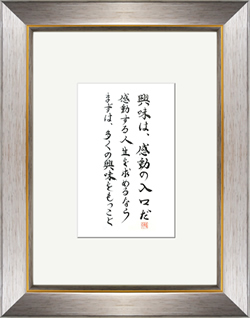 興味は、感動の入口だ
感動する人生を求めるなら
まずは、多くの興味をもつこと